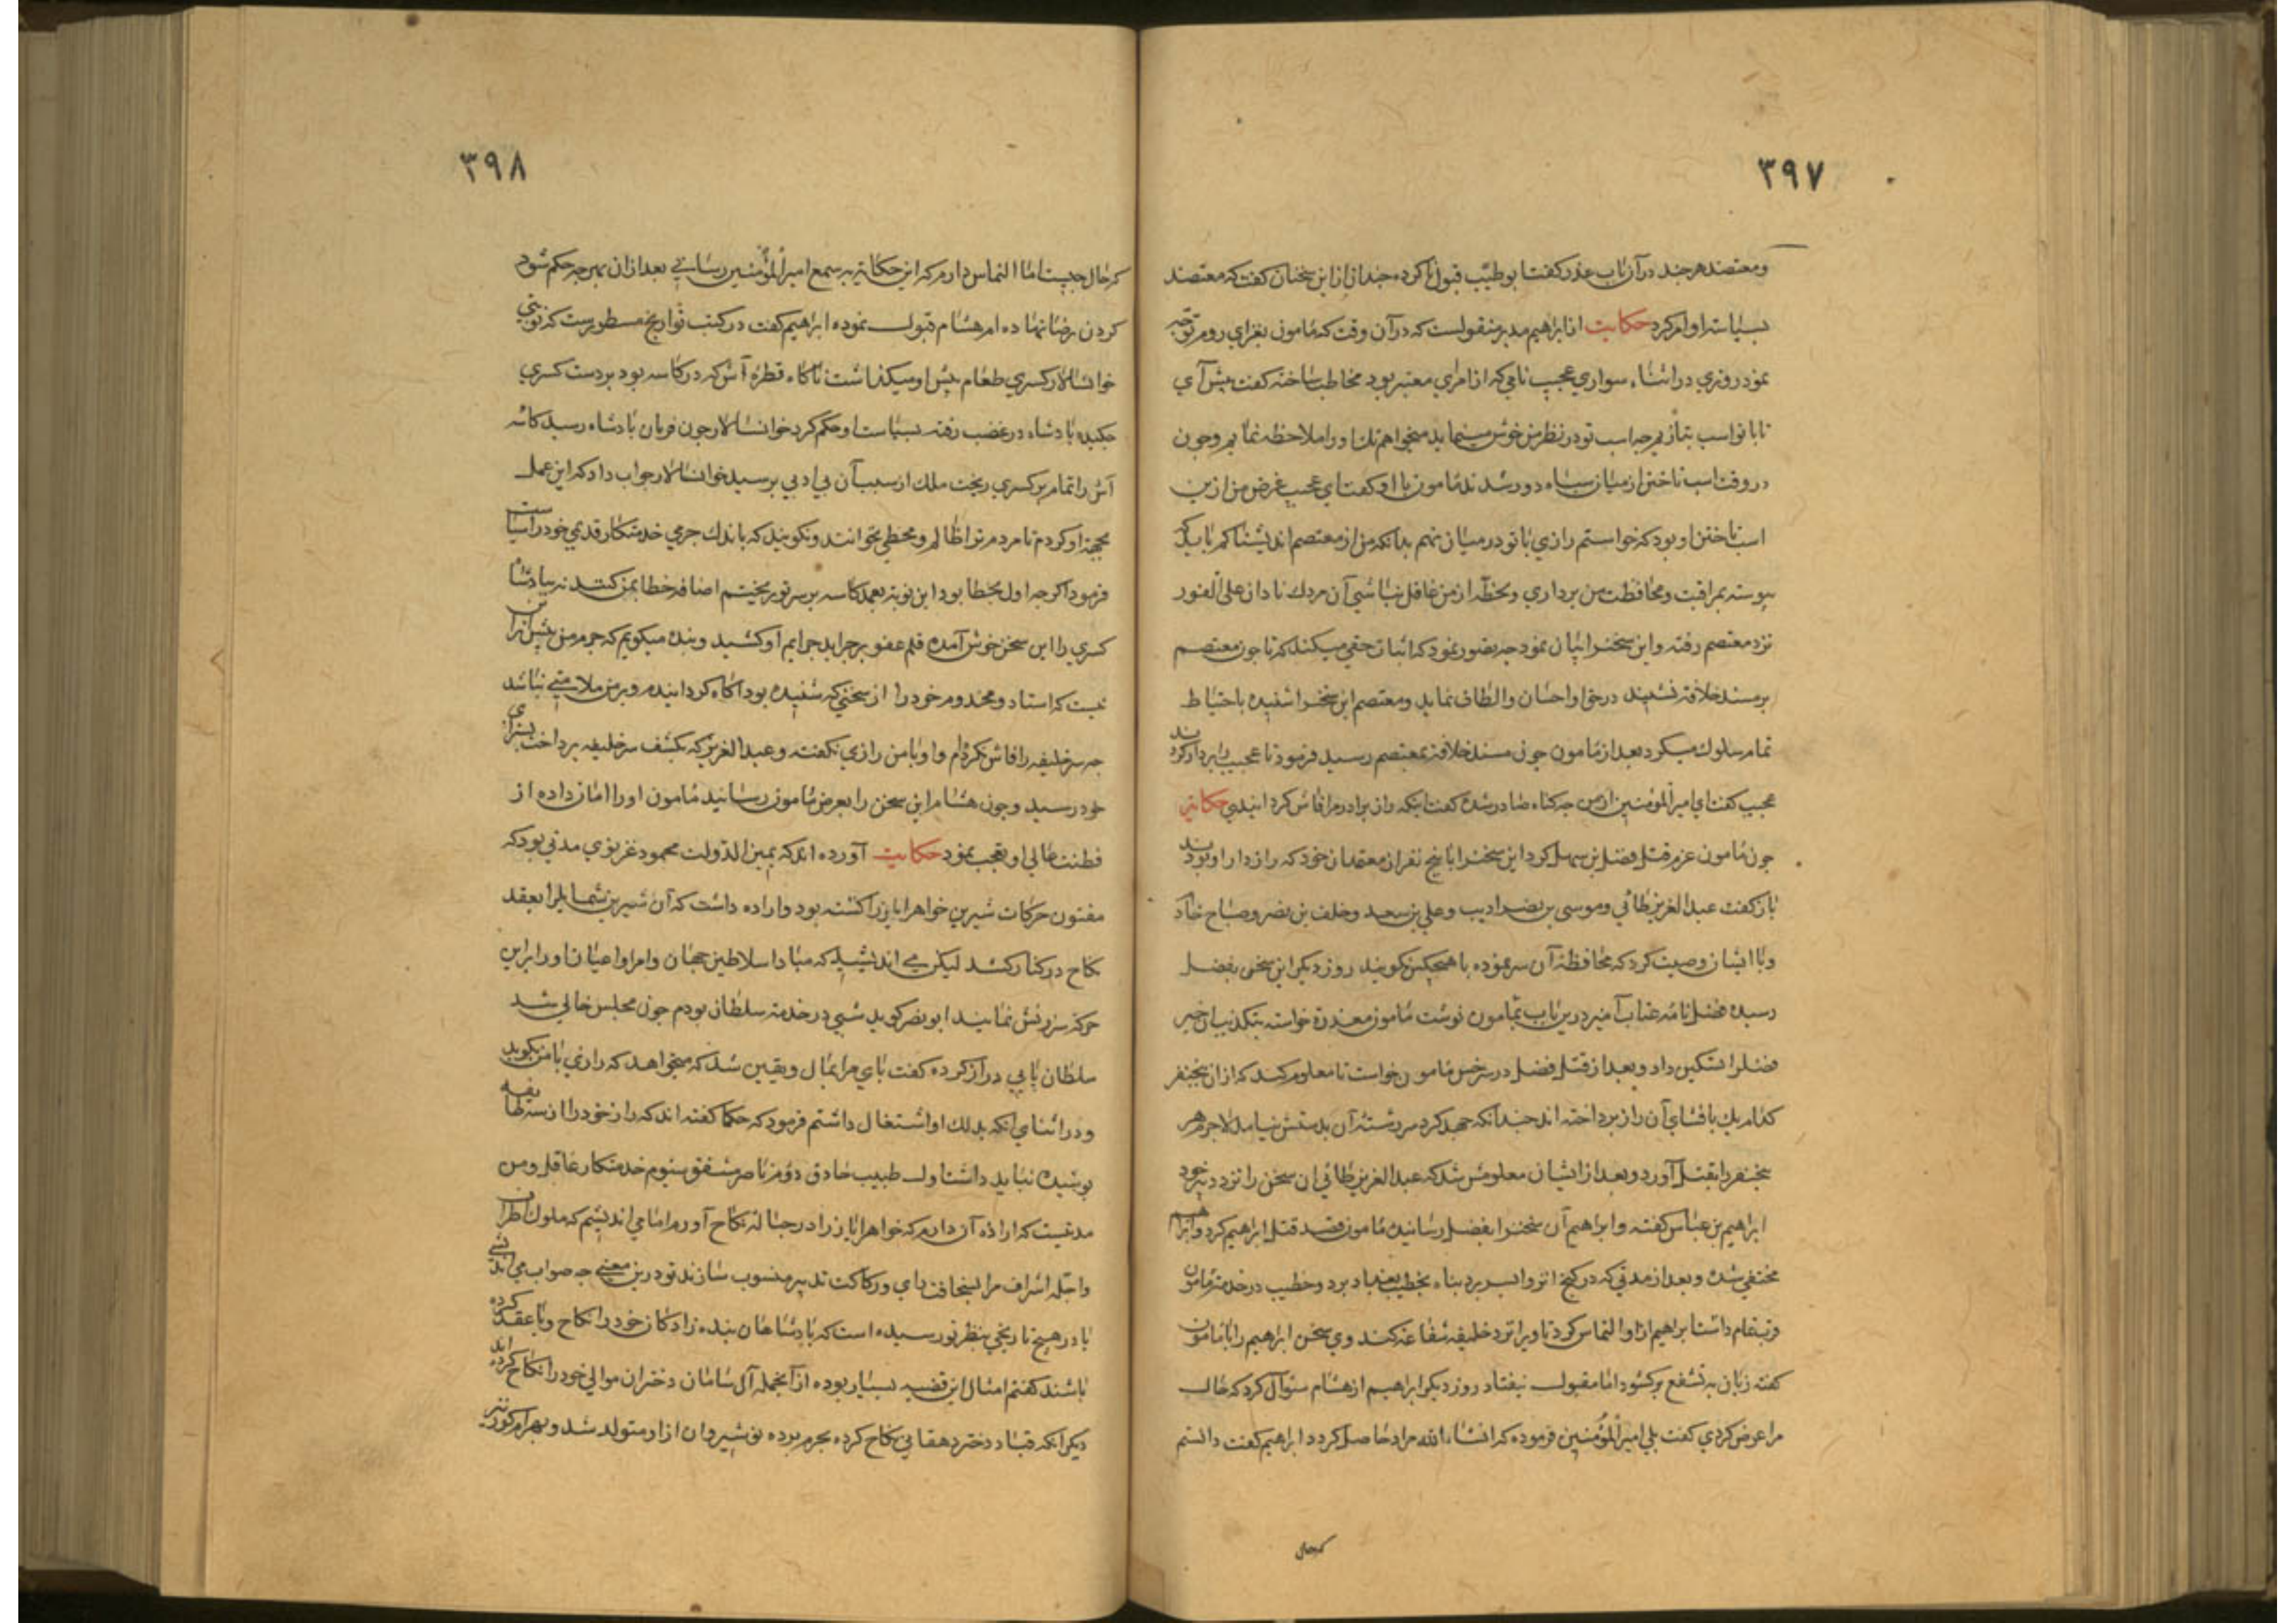 ٣٩٧
ومعتضد هرچند در آن باب عذر گفت ابو طیّب قبول نا کرده چندان از این سخنان گفت که معتضد
بسیاست او امر کرد حکایت از ابراهیم مدبر منقولست که در آن وقت که مامون بغزای روم توجّه
نمود روزی در اثناء سواری عجیب نامی که از امرای معتبر بود مخاطب ساخته گفت پیش آی
تا با تو اسب بتازیم چه اسب تو در نظر من خوش مینماید میخواهم تك او را ملاحظه نمایم و چون
در وقت اسب تاختن از میان سپاه دور شدند مامون با او گفت ای عجیب غرض من ازین
اسب تاختن او بود که خواستم رازی با تو در میان نهم بدانکه من از معتصم اندیشناکم باید که
پیوسته بمراقبت و محافظت من برداری و لحظهٔ از من غافل نباشی آن مردك نادان علی الفور
نزد معتصم رفته و این سخنرا بیان نمود چه تصور نمود که اثبات حقی میکند که تا چون معتصم
بر مسند خلافة نشیند در حق او احسان و الطاف نماید و معتصم این سخنرا شنیده باحتیاط
تمام سلوك میکرد بعد از مامون چون مسند خلافة بمعتصم رسید فرمود تا عجیب را بر دار کردند
عجیب گفت ای امیر المؤمنین از من چه کناه صادر شده گفت اینکه راز برادرم را فاش کردانیدی حکایة
چون مامون عزم قتل فضل بن سهل کرد این سخنرا با پنج نفر از معتمدان خود که رازدار او بودند
باز گفت عبد العزیز طائی و موسی بن نصر ادیب و علی بن سعید و خلف بن نصر و صباح خاد
و با ایشان وصیت کرد که محافظة آن سر نموده با هیچکس نکویند روز دیکر این سخن بفضل
رسیده فضل نامهٔ عتاب آمیز درین باب بمامون نوشت مامون معذرة خواسته بتکذیب آن خبر
فضلرا تسکین داد و بعد از قتل فضل در سرخس مامون خواست تا معلوم کند که از آن پنجنفر
کدام یك بافشای آن راز پرداخته اند چندانکه جهد کرد سر رشتهٔ آن بدستش نیامد لاجرم هر
پنجنفر را بقتل آورد و بعد از ایشان معلومش شد که عبد العزیز طائی ان سخن را نزد دبیر خود
ابراهیم بن عباس گفته و ابراهیم آن سخنرا بفضل رسانیده مامون قصد قتل ابراهیم کرد و ابراهیم
مختفی شده و بعد از مدتی که در کنج انزوا بسر برد پناه بخطیب بغداد برد و خطیب در خدمة مامون
قرب تمام داشت ابراهیم ازو التماس کرد تا ویرا نزد خلیفه شفاعه کند وی سخن ابراهیم را با مامون
گفته زبان به تشفع برکشود اما مقبول نیفتاد روز دیکر ابراهیم از هشام سئوال کرد که حال
مرا عرض کردی گفت بلی امیر المؤمنین فرموده که انشاء الله مراد حاصل کردد ابراهیم گفت دانستم
که حال
٣٩٨
که حال چیست اما التماس دارم که این حکایة به سمع امیر المؤمنین رسانی بعد از آن بهر چه حکم شود
کردن برضا نهاده ام هشام قبول نموده ابراهیم گفت در کتب تواریخ مسطورست که نوبتی
خوانسالار کسری طعام پیش او میکذاشت ناکاه قطرهٔ آش که در کاسه بود بر دست کسری
چکیده پادشاه در غضب رفته بسیاست او حکم کرد خوانسالار چون فرمان پادشاه رسید کاسه
آش را تمام بر کسری ریخت ملك از سبب آن بی ادبی پرسید خوانسالار جواب داد که این عمل
بجهة او کردم تا مردم ترا ظالم و مخطی نخوانند و نکویند که باندك جرمی خدمتکار قدیمی خود را سیاست
فرمود اکرچه اول بخطا بود این نوبة بعمد کاسه بر سر تو ریختم اضافه خطا بمن کنند نه بپادشاه
کسری را این سخن خوش آمده قلم عفو بر جراید جرایم او کشید و بنده میکویم که جرم من بیش از آن
نیست که استاد و مخدوم خود را از سخنی که شنیده بود آکاه کردانیدم و بر من ملامتی نباشد
چه سر خلیفه را فاش نکرده ام و او با من رازی نکفته و عبد العزیز که بکشف سر خلیفه پرداخت بسزای
خود رسید و چون هشام این سخن را بعرض مامون رسانید مامون او را امان داده از
فطنت عالی او تعجب نمود حکایت آورده اند که یمین الدّولت محمود غزنوی مدتی بود که
مفتون حرکات شیرین خواهر ایاز را کشته بود و اراده داشت که آن شیرین شمایلرا بعقد
نکاح در کنار کشد لیکن می اندیشید که مبادا سلاطین جهان و امرا و اعیان او را برین
حرکة سرزنش نمایند ابو نصر کوید شبی در خدمة سلطان بودم چون مجلس خالی شد
سلطان پایی دراز کرده گفت پای مرا بمال و یقین شد که میخواهد که رازی با من بکوید
و در اثنای انکه بدلك او اشتغال داشتم فرمود که حکما گفته اند که راز خود را از سه طایفه
پوشیده نباید داشت اول طبیب حاذق دوم ناصر مشفق سیوم خدمتکار عاقل و من
مدتیست که اراده آن دارم که خواهر ایاز را در حباله نکاح آورم اما می اندیشم که ملوك اطراف
و اجله اشراف مرا بسخافت رای و رکاکت تدبیر منسوب سازند تو درین معنی چه صواب می اندیشی
یا در هیچ تاریخی بنظر تو رسیده است که پادشاهان بنده زادکان خود را نکاح و یا عقد کرده
باشند گفتم امثال این قضیه بسیار بوده از آنجمله آل سامان دختران موالی خود را نکاح کرده اند
دیکر انکه قباد دختر دهقانی نکاح کرده بحرم برده نوشیروان ازاو متولد شد و بهرام کور نیز